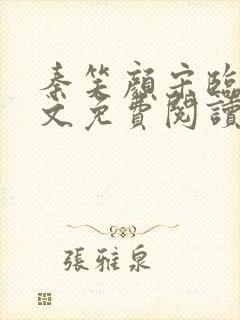 秦笑顏宋臨
文免費閱讀
張雅泉